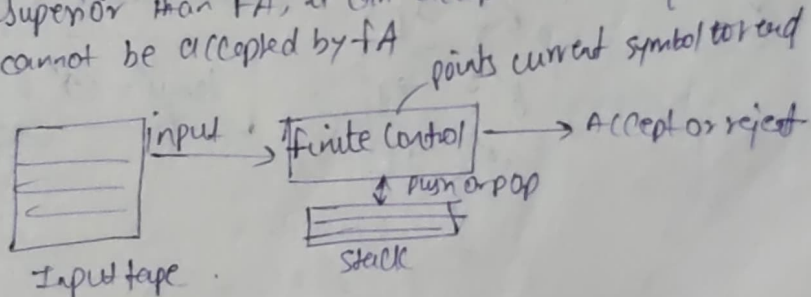 superior than FA,
cannot be accepted by fA
points current symbol to read
input
finite Control
Accept or reject
push or pop
stack
Input tape